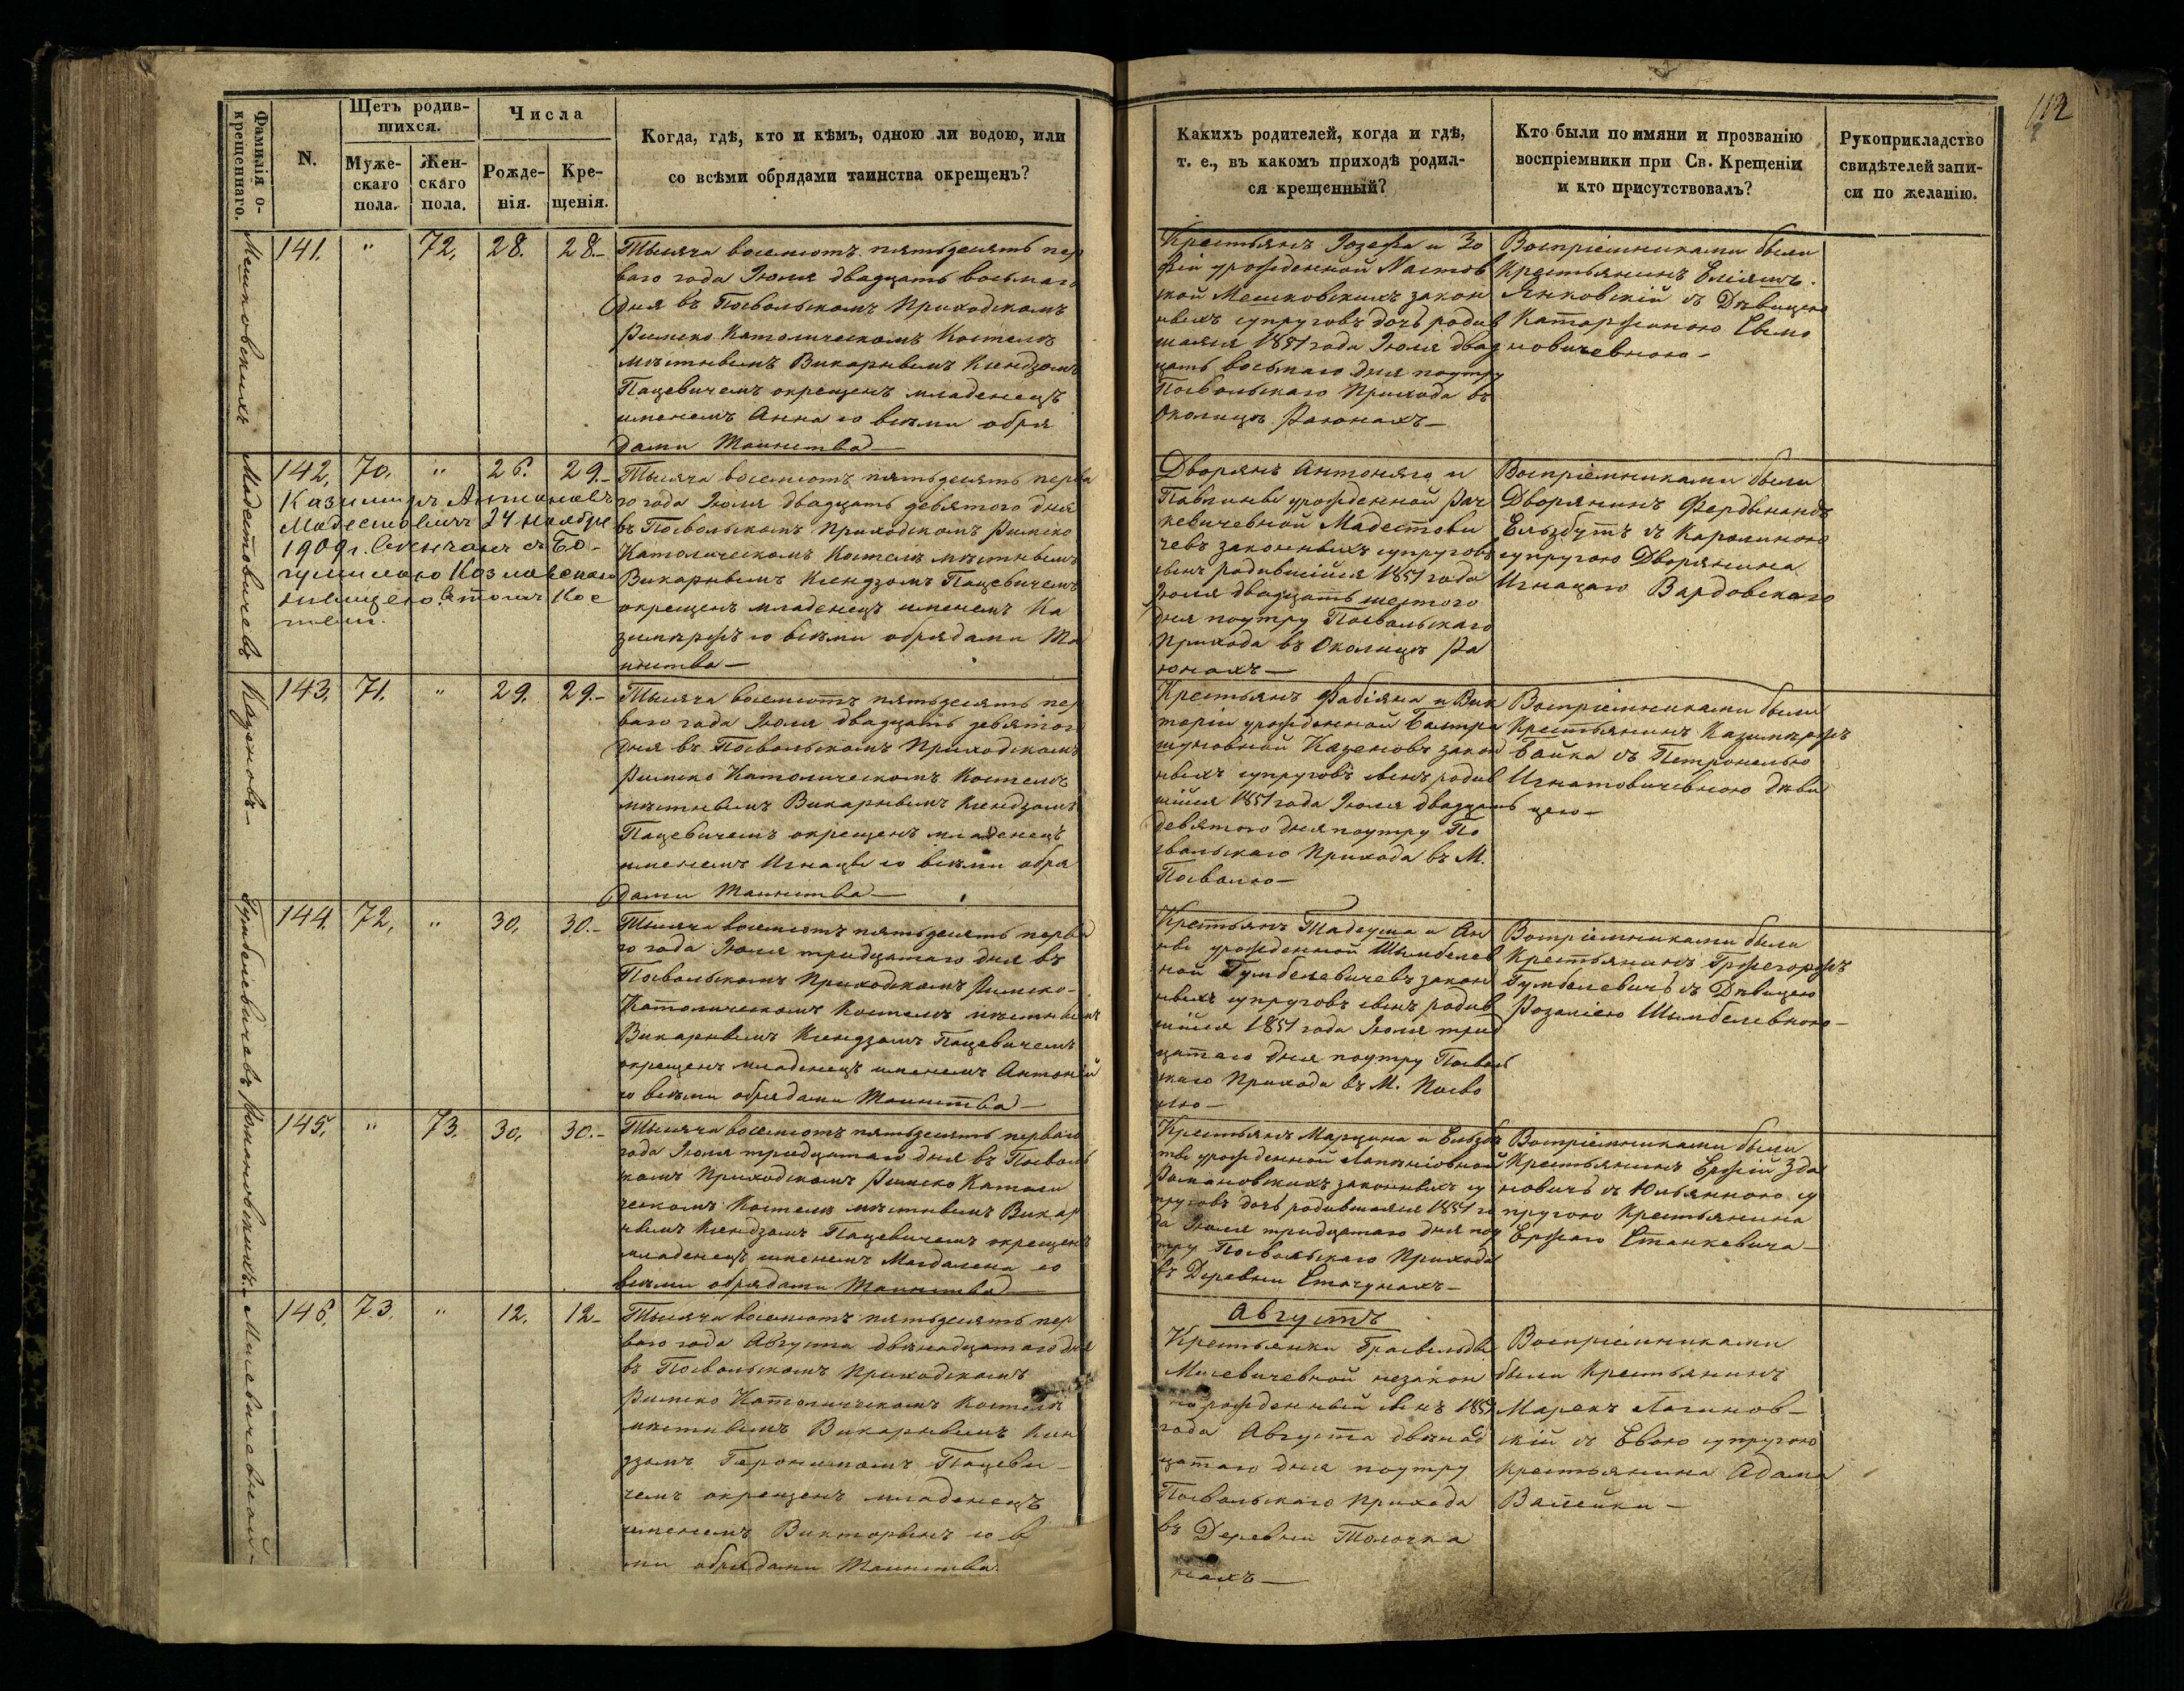 112
Фамилія о-
крещеннаго.
N.
Щетъ родив-
шихся.
Муже-
скаго
пола.
Жен-
скаго
пола.
Числа
Рожде-
нія.
Кре-
щенія.
Когда, гдѣ, кто и кѣмъ, одною ли водою, или
со всѣми обрядами таинства окрещенъ?
Какихъ родителей, когда и гдѣ,
т. е., въ какомъ приходѣ родил-
ся крещенный?
Кто были по имяни и прозванію
воспріемники при Св. Крещеніи
и кто присутствовалъ?
Рукоприкладство
свидѣтелей запи-
си по желанію.
Мешковскихъ
141. " 72, 28. 28.-
Тысяча восемсотъ пятьдесятъ пер
ваго года Іюля двадцать восьмаго
дня въ Посвольскомъ Приходскомъ
Римско Католическомъ Костелѣ
мѣстнымъ Викарнымъ Ксендзомъ
Пацевичемъ окрещенъ младенецъ
именемъ Анна со всѣми обря
дами Таинства—
Крестьянъ Іозефа и Зо
фіи урожденной
Мешковскихъ закон
ныхъ супруговъ дочь родив
шаяся 1851 года Іюля двад
цать восьмаго дня поутру
Посвольскаго Прихода въ
Околицѣ Раюнахъ—
Воспріемниками были
Крестьянинъ Еліяшъ
Янковскій съ Дѣвицею
Катаржиною
новичевною—
Мадестовичевъ
142, 70, " 26. 29.-
Казимиръ Антоновъ
Мадестовичъ 24 ноября
1909 г. Венчанъ с Бо-
гумилою Козловскою
костел.
Тысяча восемсотъ пятьдесятъ перва
го года Іюля двадцать девятого дня
въ Посвольскомъ Приходскомъ Римско
Католическомъ Костелѣ мѣстнымъ
Викарнымъ Ксендзомъ Пацевичемъ
окрещенъ младенецъ именемъ Ка
зимѣржъ со всѣми обрядами Та
инства—
Дворянъ Антоняго и
Павлины урожденной Рач
кевичевной Мадестови
чевъ законныхъ супруговъ
сынъ родившійся 1851 года
Іюля двадцать шестого
дня поутру Посвольскаго
Прихода въ Околицѣ Ра
юнахъ—
Воспріемниками были
Дворянинъ Фердынандъ
Ельзбутъ съ Каролиною
супругою Дворянина
Игнацаго Вардовскаго
Казеновъ—
143, 71. " 29, 29.-
Тысяча восемсотъ пятьдесятъ пер
ваго года Іюля двадцать девятого
дня въ Посвольскомъ Приходскомъ
Римско Католическомъ Костелѣ
мѣстнымъ Викарнымъ Ксендзомъ
Пацевичемъ окрещенъ младенецъ
именемъ Игнацы со всѣми обря
дами Таинства—
Крестьянъ Фабіяна и Вик
торіи урожденной Балтра
шуновной Казеновъ закон
ныхъ супруговъ сынъ родив
шійся 1851 года Іюля двадцать
девятого дня поутру По
свольскаго Прихода въ М.
Посволю—
Воспріемниками были
Крестьянинъ Казимѣржъ
Байка съ Петронелью
Игнатовичевною дѣви
цею—
Гумбелевичевъ
144. 72, " 30, 30.-
Тысяча восемсотъ пятьдесятъ перва
го года Іюля тридцатаго дня въ
Посвольскомъ Приходскомъ Римско-
Католическомъ Костелѣ мѣстнымъ
Викарнымъ Ксендзомъ Пацевичемъ
окрещенъ младенецъ именемъ Антоній
со всѣми обрядами Таинства—
Крестьянъ Тадеуша и Ан
ны урожденной Шымбелев
ной Гумбелевичевъ закон
ныхъ супруговъ сынъ родив
шійся 1851 года Іюля трид
цатаго дня поутру Посволь
скаго Прихода въ М. Посво
лю—
Воспріемниками были
Крестьянинъ Гржегоржъ
Гумбелевичъ съ Дѣвицею
Розаліею Шымбелевною—
Романовскихъ
145. " 73. 30, 30.-
Тысяча восемсотъ пятьдесятъ перваго
года Іюля тридцатаго дня въ Посволь
скомъ Приходскомъ Римско Католи
ческомъ Костелѣ мѣстнымъ Викар
нымъ Ксендзомъ Пацевичемъ окрещенъ
младенецъ именемъ Магдалена со
всѣми обрядами Таинства—
Крестьянъ Марцина и Ельзбѣ
ты урожденной
Романовскихъ законныхъ су
пруговъ дочь родившаяся 1851 го
да Іюля тридцатаго дня поу
тру Посвольскаго Прихода
въ Деревни Стачунахъ—
Воспріемниками были
Крестьянинъ Ержій Зда
новичъ съ Юльянною су
пругою Крестьянина
Ержаго Станкевича—
Мисевичевной
146, 73. " 12, 12-
Тысяча восемсотъ пятьдесятъ пер
ваго года Августа двѣнадцатаго дня
въ Посвольскомъ Приходскомъ
Римско Католическомъ Костелѣ
мѣстнымъ Викарнымъ Ксен
дзомъ Геронимомъ Пацеви-
чемъ окрещенъ младенецъ
именемъ Викторынъ со в
ми обрядами Таинства
Августъ
Крестьянки
Мисевичевной незакон
но рожденный сынъ 1851
года Августа двѣнад
цатаго дня поутру
Посвольскаго Прихода
въ Деревни Толочка
нахъ—
Воспріемниками
были Крестьянинъ
Марекъ Логинов-
скій съ Евою супругою
крестьянина Адама
Валейки—